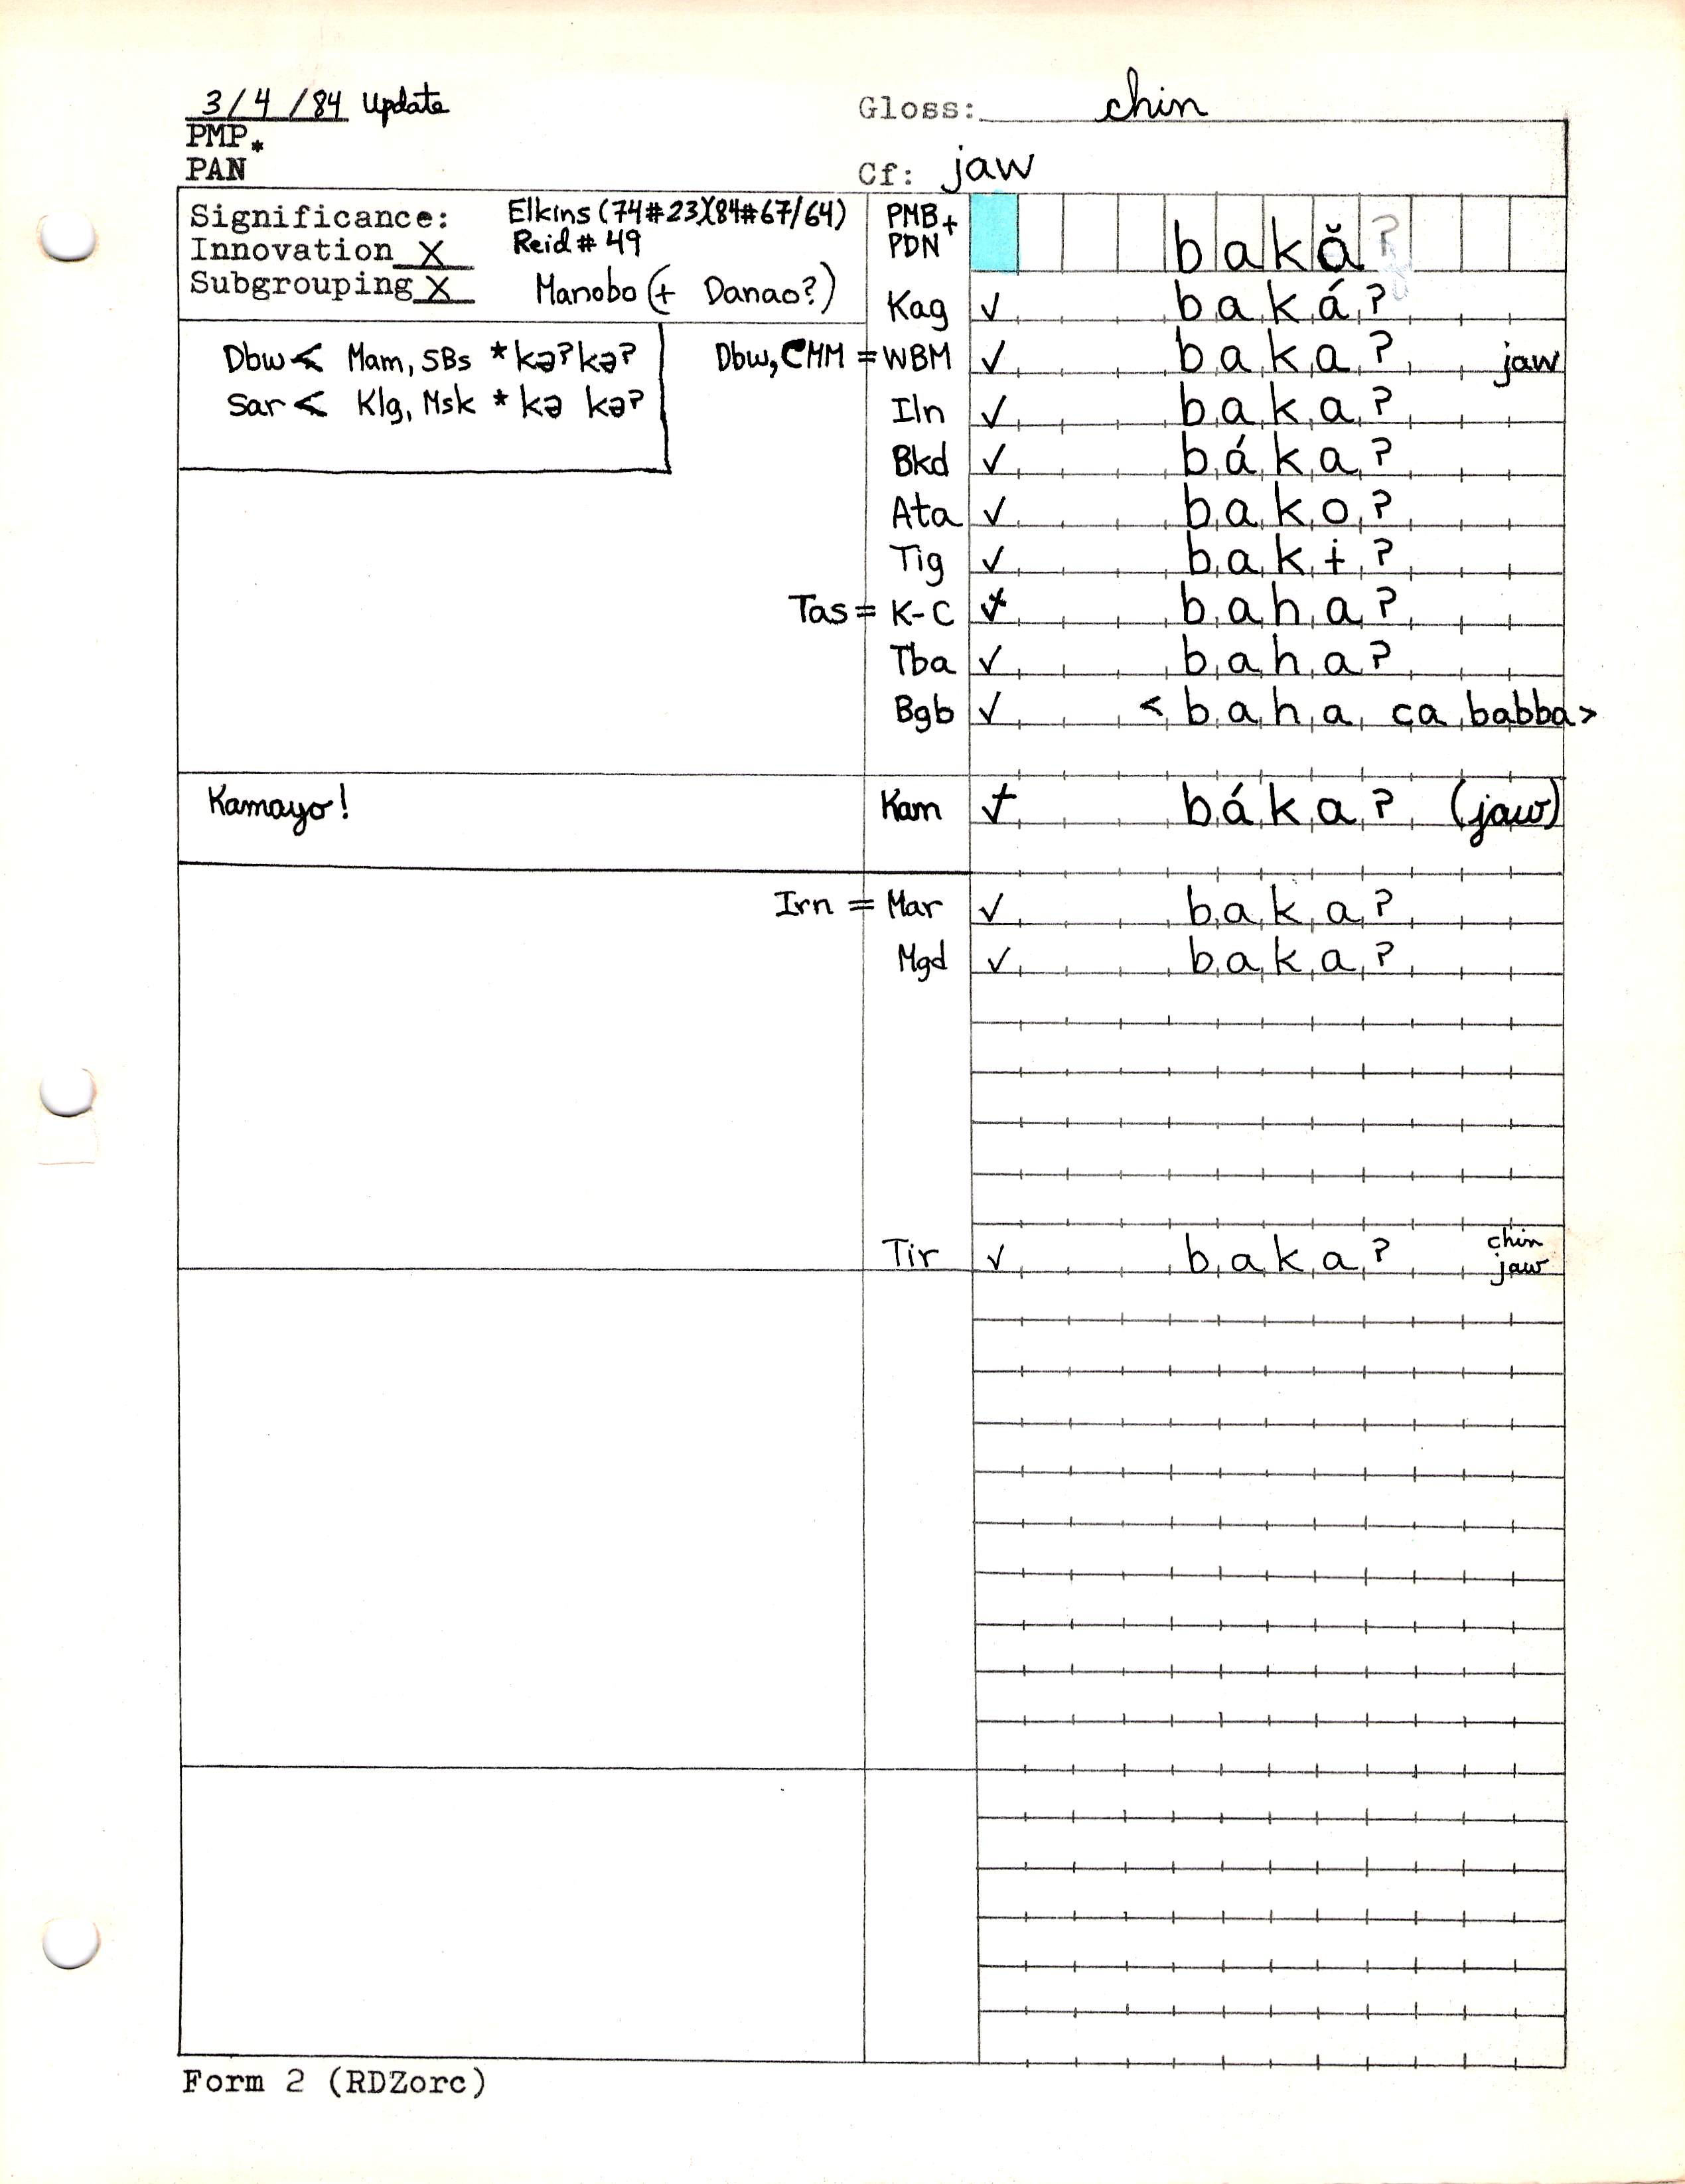 3/4/84 Update
Gloss: chin
PMP *
PAN
Cf: jaw
Significance: Elkins (74#23)(84#67/64)
Innovation X Reid # 49
Subgrouping X Manobo (+ Danao?)
PMB +
PDN bakǎʔ
Kag ✓ bakáʔ
Dbw < Mam, SBs *kəʔkəʔ
Dbw, CMM = WBM ✓ bakaʔ jaw
Sar < Klg, Msk *kə kəʔ
Iln ✓ bakaʔ
Bkd ✓ bákaʔ
Ata ✓ bakoʔ
Tig ✓ bakɨʔ
Tas = K-C ✓ bahaʔ
Tba ✓ bahaʔ
Bgb ✓ <baha ca babba>
Kamayo! Kam ✓ bákaʔ (jaw)
Irn = Mar ✓ bakaʔ
Mgd ✓ bakaʔ
Tir ✓ bakaʔ chin
jaw
Form 2 (RDZorc)